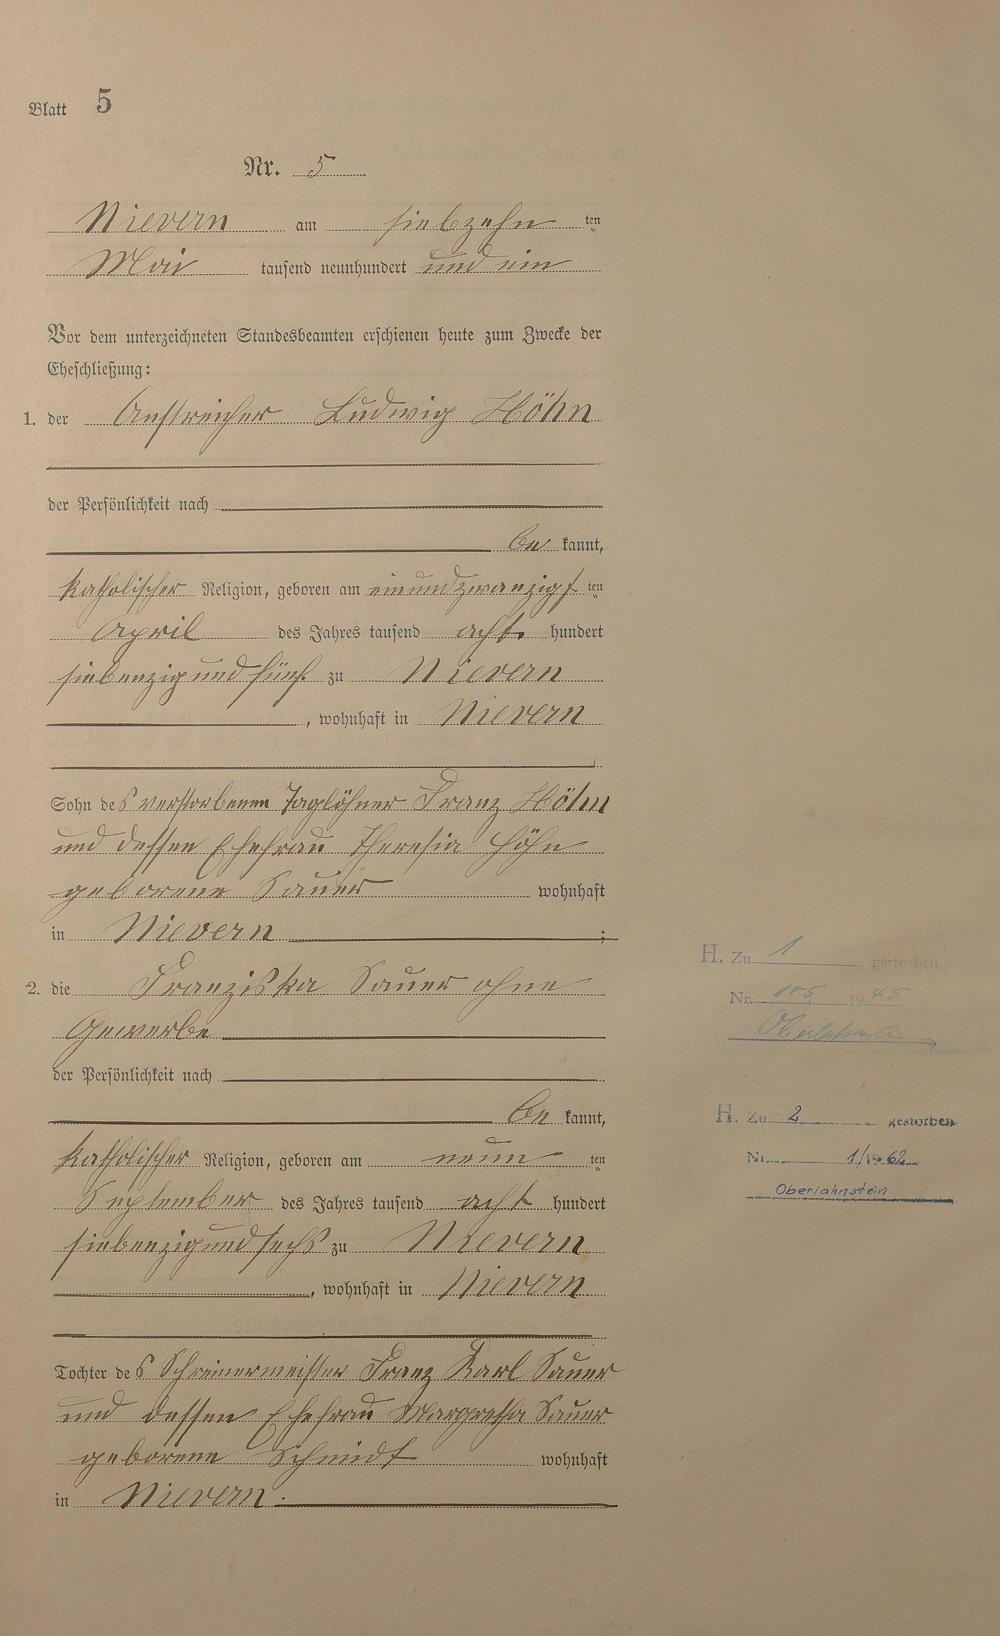 Blatt 5
Nr. 5
Nievern am siebzehn ten
Mai tausend neunhundert und ein
Vor dem unterzeichneten Standesbeamten erschienen heute zum Zwecke der
Eheschließung:
1. der Anstreicher Ludwig Höhn
der Persönlichkeit nach
be kannt,
katholischer Religion, geboren am einundzwanzigs ten
April des Jahres tausend acht hundert
siebenzigundfünf zu Nievern
, wohnhaft in Nievern
Sohn des verstorbenen Taglöhner Franz Höhn
und dessen Ehefrau Theresia Höhn
geborene Sauer wohnhaft
in Nievern ;
2. die Franziska Sauer ohne
Gewerbe
der Persönlichkeit nach
be kannt,
katholischer Religion, geboren am neun ten
September des Jahres tausend acht hundert
siebenzigundsechs zu Nievern
, wohnhaft in Nievern
Tochter des Schreinermeister Franz Karl Sauer
und dessen Ehefrau Margretha Sauer
geborene Schmidt wohnhaft
in Nievern.
H. Zu 1 gestorben
Nr. 105 1945
H. Zu 2 gestorben
Nr. 1/1962
Oberlahnstein